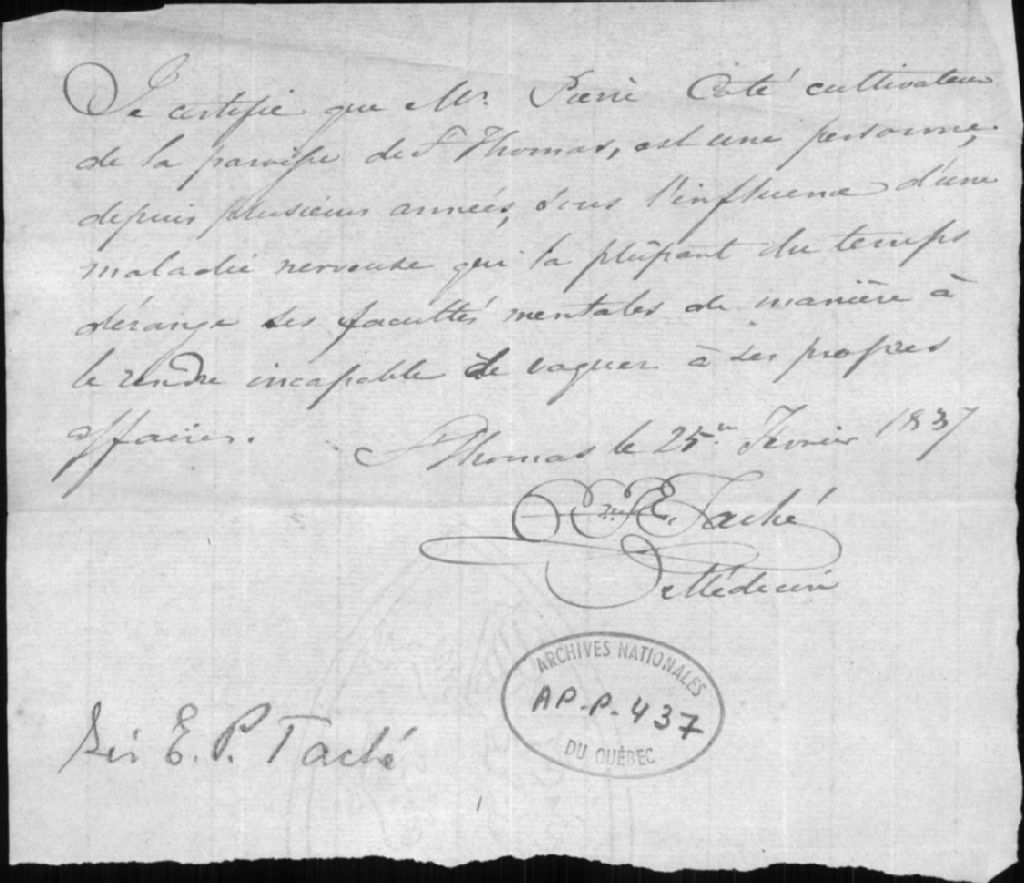 Je certifie que Mr. Pierre Coté cultivateur
de la paroisse de St Thomas, est une personne,
depuis plusieurs années, sous l'influence d'une
maladie nerveuse qui la plûpart du temps
dérange ses facultés mentales de manière à
le rendre incapable de vaquer à ses propres
affaires.
St Thomas le 25 Février 1837
E. Taché
Médecin
ARCHIVES NATIONALES
AP-P-437
DU QUÉBEC
Sir E. P. Taché